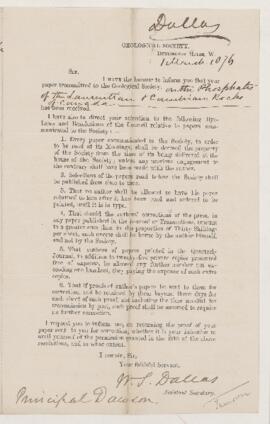 Dallas
GEOLOGICAL SOCIETY,
BURLINGTON HOUSE, W.
1 March 1876
SIR,
I HAVE the honour to inform you that your
paper transmitted to the Geological Society, on the Phosphates
of the Laurentian & Cambrian Rocks
of Canada
has been received.
I have also to direct your attention to the following Bye-
Laws and Resolutions of the Council relative to papers com-
municated to the Society:—
1. Every paper communicated to the Society, in order
to be read at its Meetings, shall be deemed the property
of the Society from the time of its being delivered at the
house of the Society, unless any previous engagement to
the contrary shall have been made with the author.
2. Selections of the papers read before the Society shall
be published from time to time.
3. That no author shall be allowed to have his paper
returned to him after it has been read and ordered to be
printed, until it is in type.
4. That should the authors' corrections of the press, in
any paper published in the Journal or Transactions, amount
to a greater sum than in the proportion of Thirty Shillings
per sheet, such excess shall be borne by the author himself,
and not by the Society.
5. That authors of papers printed in the Quarterly
Journal, in addition to twenty-five private copies presented
free of expense, be allowed any further number not ex-
ceeding one hundred, they paying the expense of such extra
copies.
6. That if proofs of author's papers be sent to them for
correction, and not be returned by them
each sheet of such proof, not including the time needful for
transmission by post, such proof shall be assumed to require
no further correction.
I request you to inform me, on returning the proof of your
paper sent to you for correction, whether it is your intention to
avail yourself of the permission granted in the fifth of the above
resolutions, and to what extent.
I remain, Sir,
Your faithful Servant,
W. S. Dallas
Assistant Secretary.
Principal Dawson.